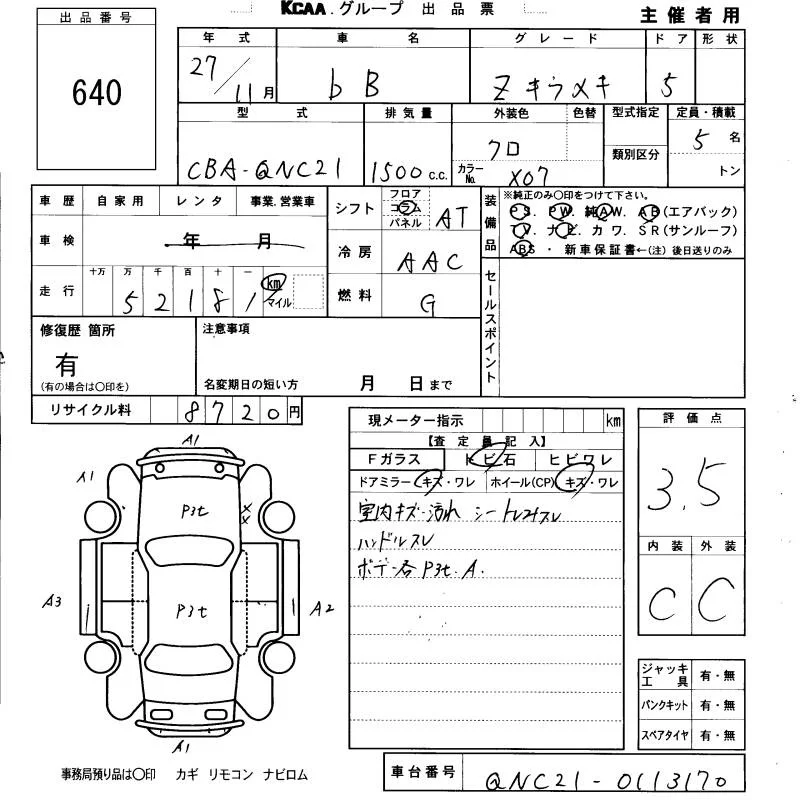 KCAA.グループ 出品票
主催者用
出品番号
640
年式 車名 グレード ドア 形状
27/11月 bB Zキラメキ 5
型式 排気量 外装色 色替 型式指定 定員・積載
CBA-QNC21 1500 c.c. クロ 5名
カラーNo. X07 類別区分 トン
車歴 自家用 レンタ 事業.営業車
車検 年 月
走行 十万 万 千 百 十 一
52181 km マイル
シフト フロア コラム パネル AT
冷房 AAC
燃料 G
装備品
※純正のみ○印をつけて下さい。
PS. PW. 純AW. AB(エアバック)
TV. ナビ. カワ. SR(サンルーフ)
ABS ・ 新車保証書←(注) 後日送りのみ
セールスポイント
修復歴 箇所
有
(有の場合は○印を)
注意事項
名変期日の短い方 月 日まで
リサイクル料 8720円
現メーター指示 km
【査定員記入】
Fガラス トビ石 ヒビワレ
ドアミラー キズ・ワレ ホイール(CP) キズ・ワレ
室内キズ・汚れ シートコゲスレ
ハンドルスレ
ボデー各P3t.A.
評価点
3.5
内装 外装
C C
ジャッキ工具 有・無
パンクキット 有・無
スペアタイヤ 有・無
A1
A1
P3t
X
X
A3
P3t
A2
A1
事務局預り品は○印 カギ リモコン ナビロム
車台番号 QNC21-0113170